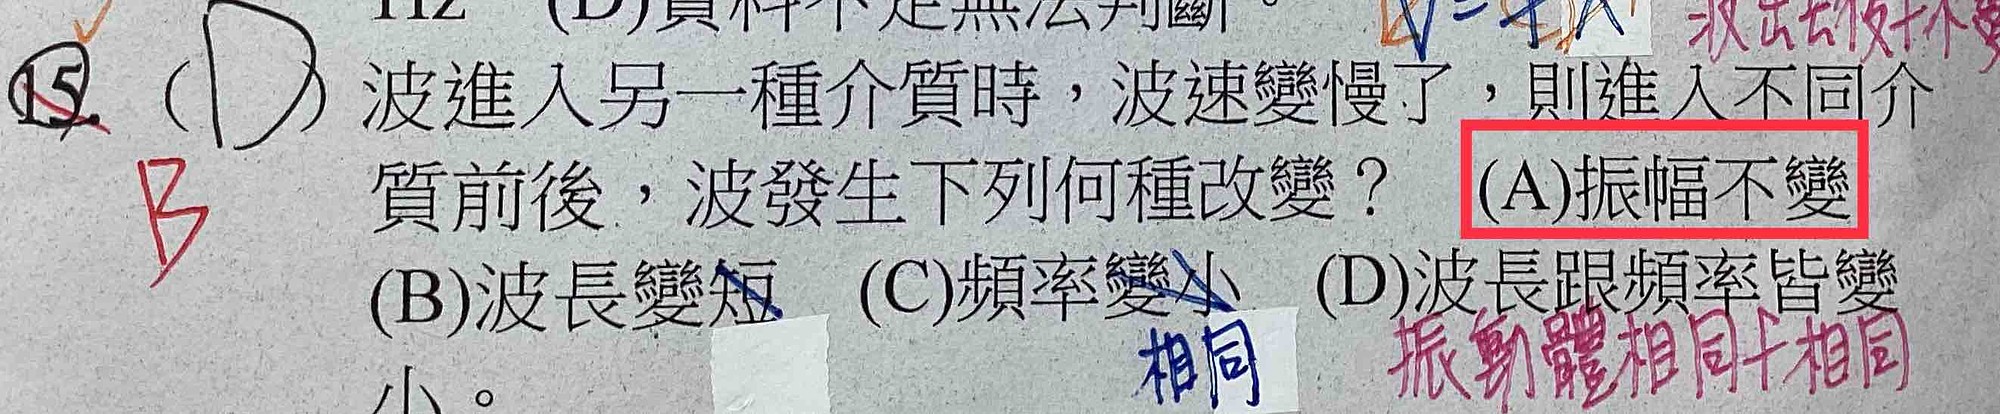 Hz (D)資料不足無法判斷。 V=fλ
15. (D) 波進入另一種介質時,波速變慢了,則進入不同介
B 質前後,波發生下列何種改變? (A)振幅不變
(B)波長變短 (C)頻率變小 (D)波長跟頻率皆變
相同 振動體相同f相同
小。